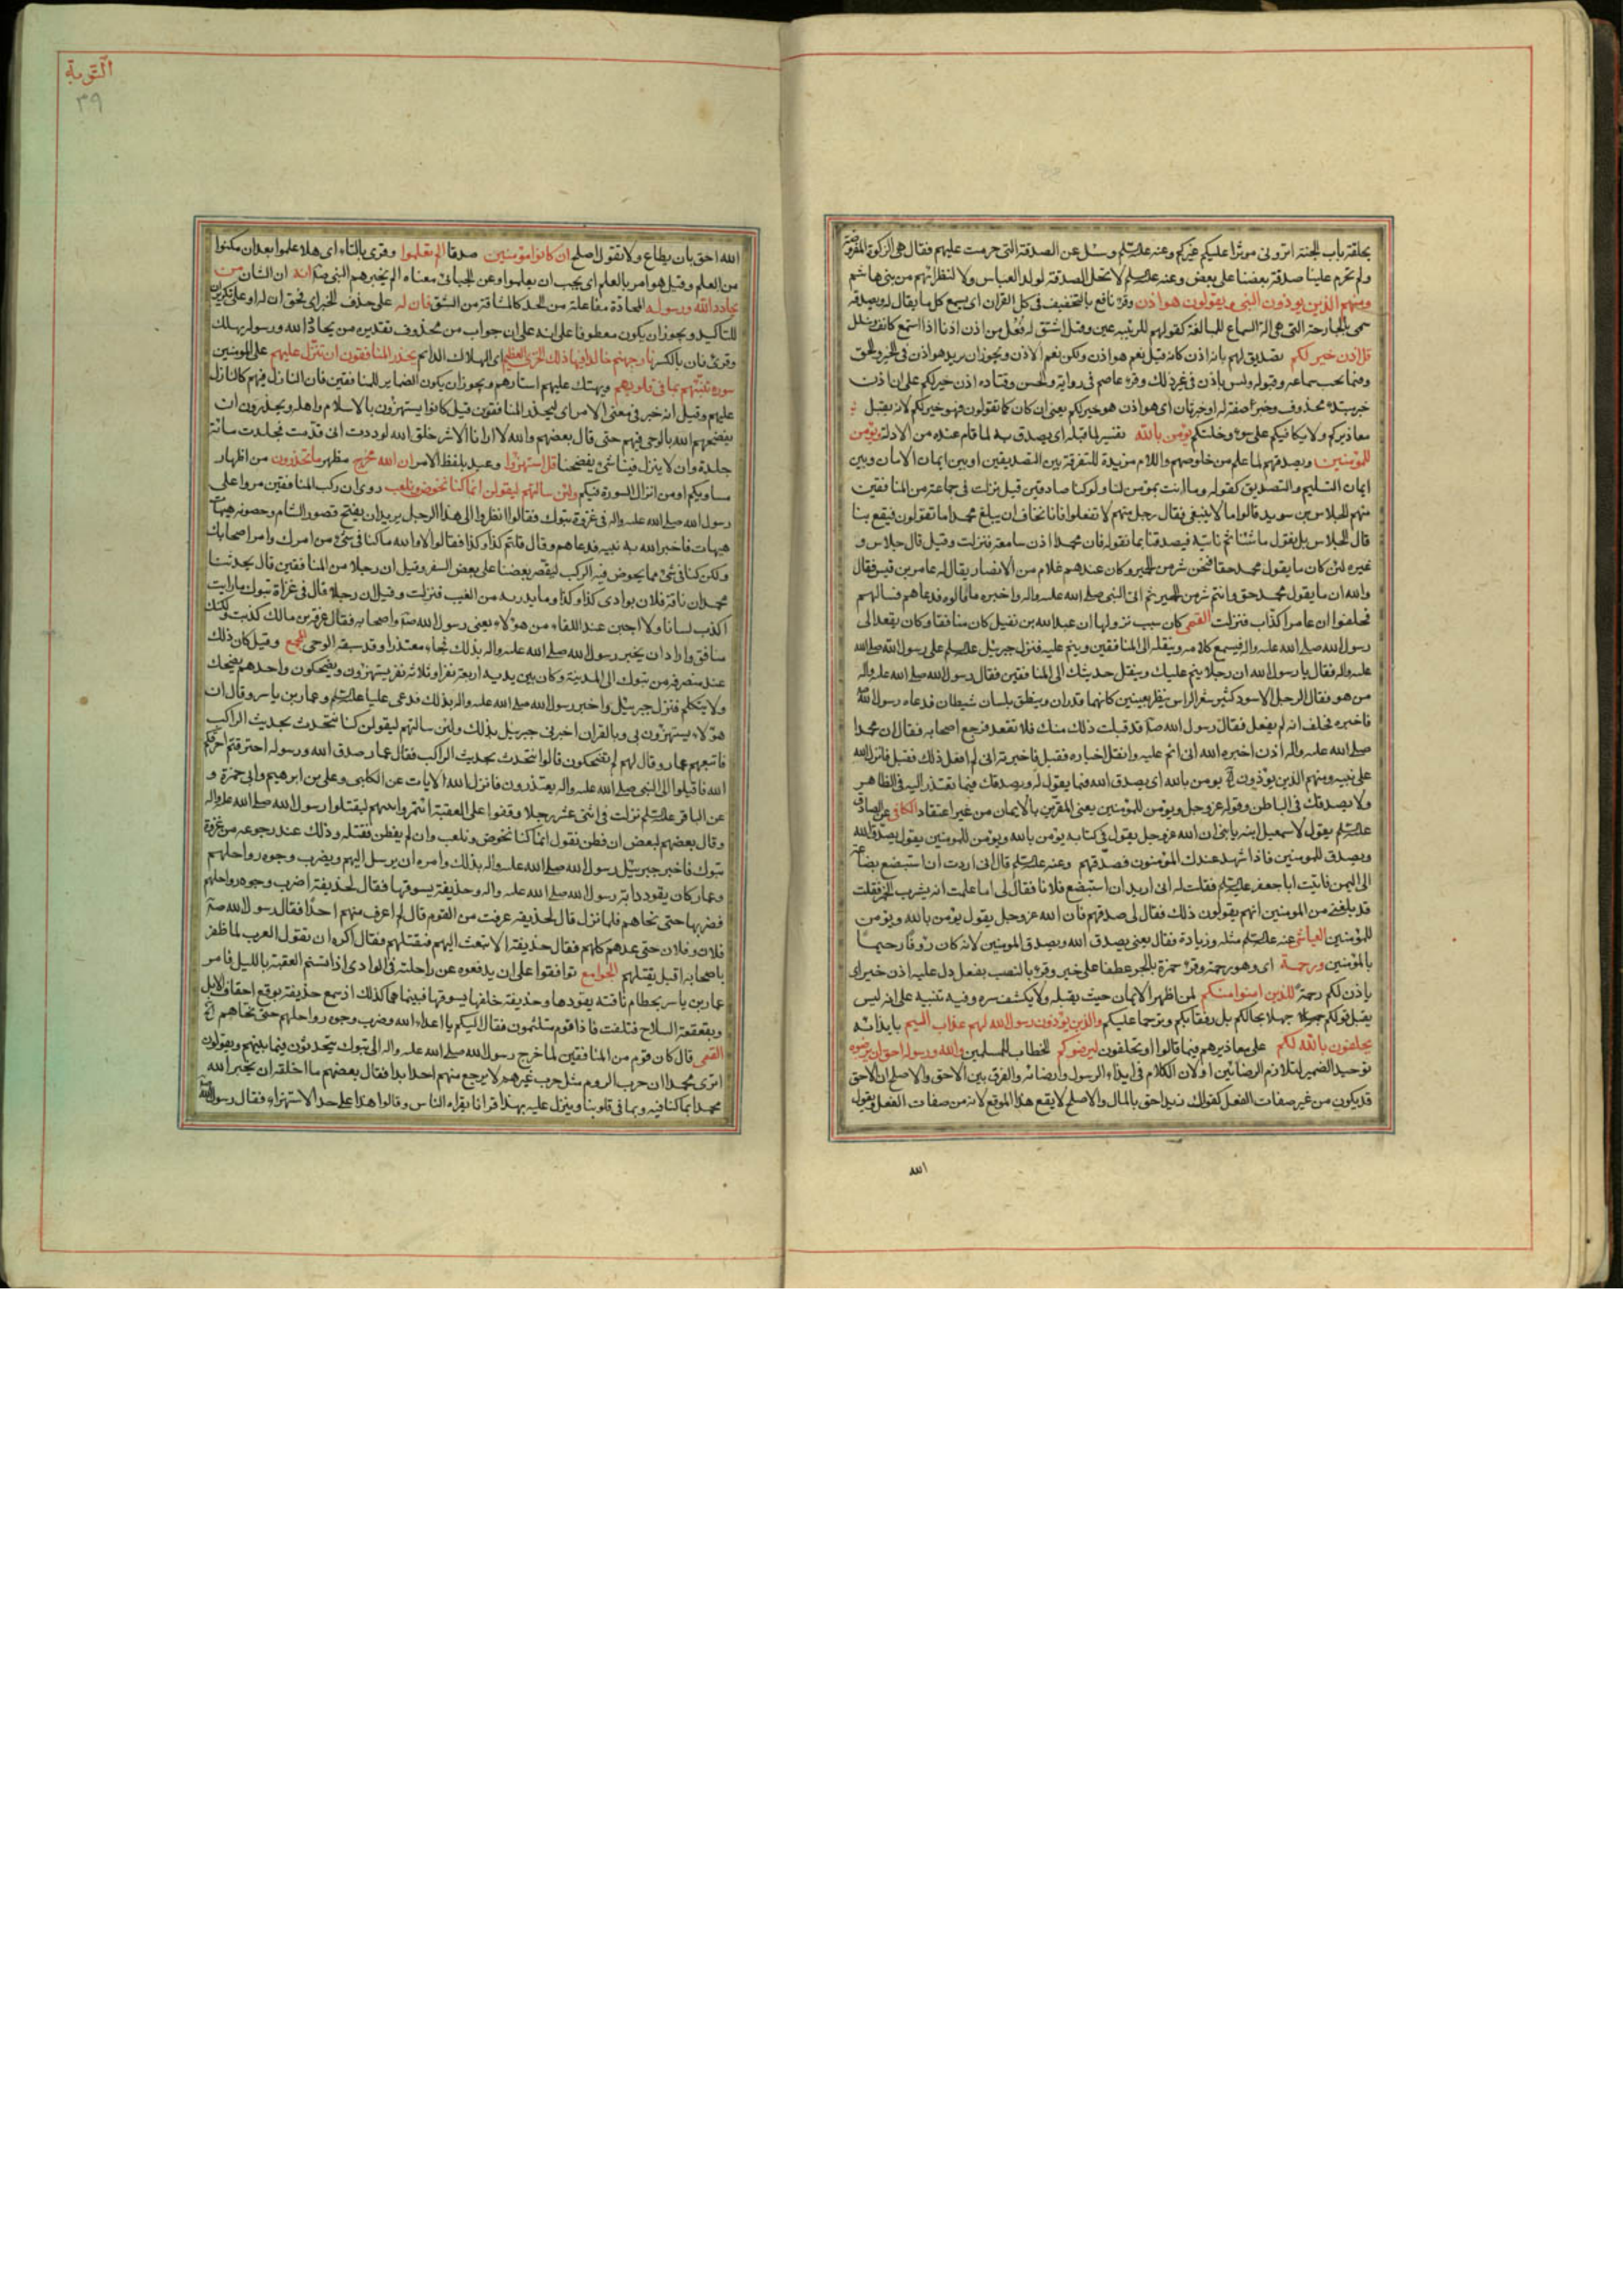 بحلقة باب الجنة اترونى موثرا عليكم غيركم وعنه علیه السلم وسئل عن الصدقة التى حرمت عليهم فقال هى الزكوة المفروضة
ولم تحرم علينا صدقة بعضنا على بعض وعنه علیه السلم لا تحل الصدقة لولد العباس ولا لنظرائهم من بنى هاشم
ومنهم الذين يوذون النبى ويقولون هو اذن وقرء نافع بالتخفيف فى كل القران اى يسمع كل ما يقال له ويصدقه
سمى بالجارحة التى هى الة السماع للمبالغة كقولهم للربيئة عين وقيل اشتق له فعل من اذن اذنا اذا استمع كانف وشلل
قل اذن خير لكم تصديق لهم بانه اذن كانه قيل نعم هو اذن ولكن نعم الاذن ويجوز ان يريد هو اذن فى الخير والحق
وفيما يجب سماعه وقبوله وليس باذن فى غير ذلك وقرء عاصم فى رواية والحسن وقتاده اذن خير لكم على ان اذن
خبر مبتدء محذوف وخير صفة له او خبر ثان اى هو اذن هو خير لكم يعنى ان كان كما تقولون فهو خير لكم لانه يقبل
معاذيركم ولا يكافيكم على سوء دخلتكم يؤمن بالله تفسير لما قبله اى يصدق به لما قام عنده من الادلة ويؤمن
للمؤمنين ويصدقهم لما علم من خلوصهم واللام مزيدة للتفرقة بين التصديقين او بين ايمان الامان وبين
ايمان التسليم والتصديق كقوله وما انت بمؤمن لنا ولو كنا صادقين قيل نزلت فى جماعة من المنافقين
منهم الجلاس بن سويد قالوا ما لا ينبغى فقال رجل منهم لا تفعلوا فانا نخاف ان يبلغ محمدا ما تقولون فيقع بنا
قال الجلاس بل نقول ما شئنا ثم ناتيه فيصدقنا بما نقول فان محمدا اذن سامعة فنزلت وقيل قال جلاس و
غيره لئن كان ما يقول محمد حقا فنحن شر من الحمير وكان عندهم غلام من الانصار يقال له عامر بن قيس فقال
والله ان ما يقول محمد حق وانتم شر من الحمير ثم اتى النبى صلى الله عليه واله واخبره ما قالوه فدعاهم فسالهم
فحلفوا ان عامرا كذاب فنزلت القمى كان سبب نزولها ان عبد الله بن نفيل كان منافقا وكان يقعد الى
رسول الله صلى الله عليه واله فيسمع كلامه وينقله الى المنافقين وينم عليه فنزل جبرئيل علیه السلم على رسول الله صلى الله
عليه واله فقال يا رسول الله ان رجلا ينم عليك وينقل حديثك الى المنافقين فقال رسول الله صلى الله عليه واله
من هو فقال الرجل الاسود كثير شعر الراس ينظر بعينين كانهما قدران وينطق بلسان شيطان فدعاه رسول الله
فاخبره فحلف انه لم يفعل فقال رسول الله ص قد قبلت ذلك منك فلا تقعد فرجع اصحابه فقال ان محمدا
صلى الله عليه واله اذن اخبره الله انى انم عليه وانقل اخباره فقبل فاخبرته انى لم افعل ذلك فقبل فانزل الله
على نبيه ومنهم الذين يؤذون يومن بالله اى يصدق الله فيما يقول له ويصدقك فيما تعتذر اليه فى الظاهر
ولا يصدقك فى الباطن وقوله عزوجل ويؤمن للمؤمنين يعنى المقرين بالايمان من غير اعتقاد الكافى عن الصادق
علیه السلم يقول لاسمعيل ابنه يا بنى ان الله عزوجل يقول فى كتابه يؤمن بالله ويؤمن للمومنين يقول يصدق الله
ويصدق للمومنين فاذا شهد عندك المؤمنون فصدقهم وعنه علیه السلم قال انى اردت ان استبضع بضاعة
الى اليمن فاتيت ابا جعفر علیه السلم فقلت له انى اريد ان استبضع فلانا فقال لى اما علمت انه يشرب الخمر فقلت
قد بلغنى من المومنين انهم يقولون ذلك فقال لى صدقهم فان الله عزوجل يقول يؤمن بالله ويؤمن
للمؤمنين العياشى عنه علیه السلم مثله وزيادة فقال يعنى يصدق الله ويصدق المومنين لانه كان رؤفا رحيما
بالمؤمنين ورحمة اى وهو رحمة وقرء حمزة بالجر عطفا على خير وقرء بالنصب بفعل دل عليه اذن خير اى
ياذن لكم رحمة للذين امنوا منكم لمن اظهر الايمان حيث يقبله ولا يكشف سره وفيه تنبيه على انه ليس
يقبل قولكم جهلا بحالكم بل رفقا بكم وترحما عليكم والذين يؤذون رسول الله لهم عذاب اليم بايذائه
يحلفون بالله لكم على معاذيرهم فيما قالوا او تخلفون ليرضوكم الخطاب للمسلمين والله ورسوله احق ان يرضوه
توحيد الضمير لتلازم الرضائين او لان الكلام فى ايذاء الرسول وارضائه والفرق بين الاحق والاصلح ان الاحق
قد يكون من غير صفات الفعل كقولك زيد احق بالمال والاصلح لا يقع هذا الموقع لانه من صفات الفعل وتقول
الله
التوبة
٣٩
الله احق بان يطاع ولا تقول اصلح ان كانوا مؤمنين صدقا الم يعلموا وقرى بالتاء اى هلا علموا بعد ان مكنوا
من العلم وقيل هو امر بالعلم اى يجب ان يعلموا وعن الجبائى معناه الم يخبرهم النبى ص انه ان الشان من
يحادد الله ورسوله المحادة مفاعلة من الحد كالمشاقة من الشق فان له على حذف الخبر اى فحق ان له او على تكرير ان
للتاكيد ويجوز ان يكون معطوفا على انه على ان جواب من محذوف تقديره من يحادد الله ورسوله يهلك
وقرئ فان بالكسر نار جهنم خالدا فيها ذلك الخزى العظيم اى الهلاك الدائم يحذر المنافقون ان تنزل عليهم على المومنين
سورة تنبئهم بما فى قلوبهم ويهتك عليهم استارهم ويجوز ان يكون الضماير للمنافقين فان النازل فيهم كالنازل
عليهم وقيل انه خبر فى معنى الامر اى ليحذر المنافقون قيل كانوا يستهزؤن بالاسلام واهله ويحذرون ان
يفضحهم الله بالوحى فيهم حتى قال بعضهم والله لا ارانا الا شر خلق الله لوددت انى قدمت فجلدت مائة
جلدة وان لا ينزل فينا شئ يفضحنا قل استهزؤا وعيد بلفظ الامر ان الله مخرج مظهر ما تحذرون من اظهار
مساويكم او من انزال السورة فيكم ولئن سالتهم ليقولن انما كنا نخوض ونلعب روى ان ركب المنافقين مروا على
رسول الله صلى الله عليه واله فى غزوة تبوك فقالوا انظروا الى هذا الرجل يريد ان يفتح قصور الشام وحصونه هيهات
هيهات فاخبر الله به نبيه فدعاهم وقال قلتم كذا وكذا فقالوا لا والله ما كنا فى شئ من امرك وامر اصحابك
ولكن كنا فى شئ مما يخوض فيه الركب ليقصر بعضنا على بعض السفر وقيل ان رجلا من المنافقين قال يحدثنا
محمد ان ناقة فلان بوادى كذا وكذا وما يدريه من الغيب فنزلت وقيل ان رجلا قال فى غزاة تبوك ما رايت
اكذب لسانا ولا اجبن عند اللقاء من هؤلاء يعنى رسول الله ص واصحابه فقال عوف بن مالك كذبت ولكنك
منافق واراد ان يخبر رسول الله صلى الله عليه واله بذلك فجاء معتذرا وقد سبقه الوحى المجمع وقيل كان ذلك
عند منصرفه من تبوك الى المدينة وكان بين يديه اربعة نفر او ثلاثة نفر يستهزؤن ويضحكون واحدهم يضحك
ولا يتكلم فنزل جبرئيل واخبر رسول الله صلى الله عليه واله بذلك فدعى عليا علیه السلم وعمار بن ياسر وقال ان
هؤلاء يستهزؤن بى وبالقران اخبرنى جبرئيل بذلك ولئن سالتهم ليقولن كنا نتحدث بحديث الراكب
فاتبعهم عمار وقال لهم لم تضحكون قالوا نتحدث بحديث الراكب فقال عمار صدق الله ورسوله احترقتم احرقكم
الله فاقبلوا الى النبى صلى الله عليه واله يعتذرون فانزل الله الايات عن الكلبى وعلى بن ابرهيم وابى حمزة و
عن الباقر علیه السلم نزلت فى اثنى عشر رجلا وقفوا على العقبة ائتمروا بينهم ليقتلوا رسول الله صلى الله عليه واله
وقال بعضهم لبعض ان فطن نقول انما كنا نخوض ونلعب وان لم يفطن نقتله وذلك عند رجوعه من غزوة
تبوك فاخبر جبرئيل رسول الله صلى الله عليه واله بذلك وامره ان يرسل اليهم ويضرب وجوه رواحلهم
وعمار كان يقود دابة رسول الله صلى الله عليه واله وحذيفة يسوقها فقال لحذيفة اضرب وجوه رواحلهم
فضربها حتى نحاهم فلما نزل قال لحذيفة عرفت من القوم قال لم اعرف منهم احدا فقال رسول الله ص
فلان وفلان حتى عدهم كلهم فقال حذيفة الا تبعث اليهم فتقتلهم فقال اكره ان تقول العرب لما ظفر
باصحابه اقبل يقتلهم الجوامع توافقوا على ان يدفعوه عن راحلته فى الوادى اذا تسنم العقبة بالليل فامر
عمار بن ياسر بخطام ناقته يقودها وحذيفة خلفها يسوقها فبينما هما كذلك اذ سمع حذيفة بوقع اخفاف الابل
وبقعقعة السلاح فتلفت فاذا قوم متلثمون فقال اليكم يا اعداء الله وضرب وجوه رواحلهم حتى نحاهم
القمى قال كان قوم من المنافقين لما خرج رسول الله صلى الله عليه واله الى تبوك يتحدثون فيما بينهم ويقولون
اترى محمدا ان حرب الروم مثل حرب غيرهم لا يرجع منهم احد ابدا فقال بعضهم ما اخلقه ان يخبر الله
محمدا بما كنا فيه وبما فى قلوبنا وينزل عليه بهذا قرانا يقراه الناس وقالوا هذا على حد الاستهزاء فقال رسول الله